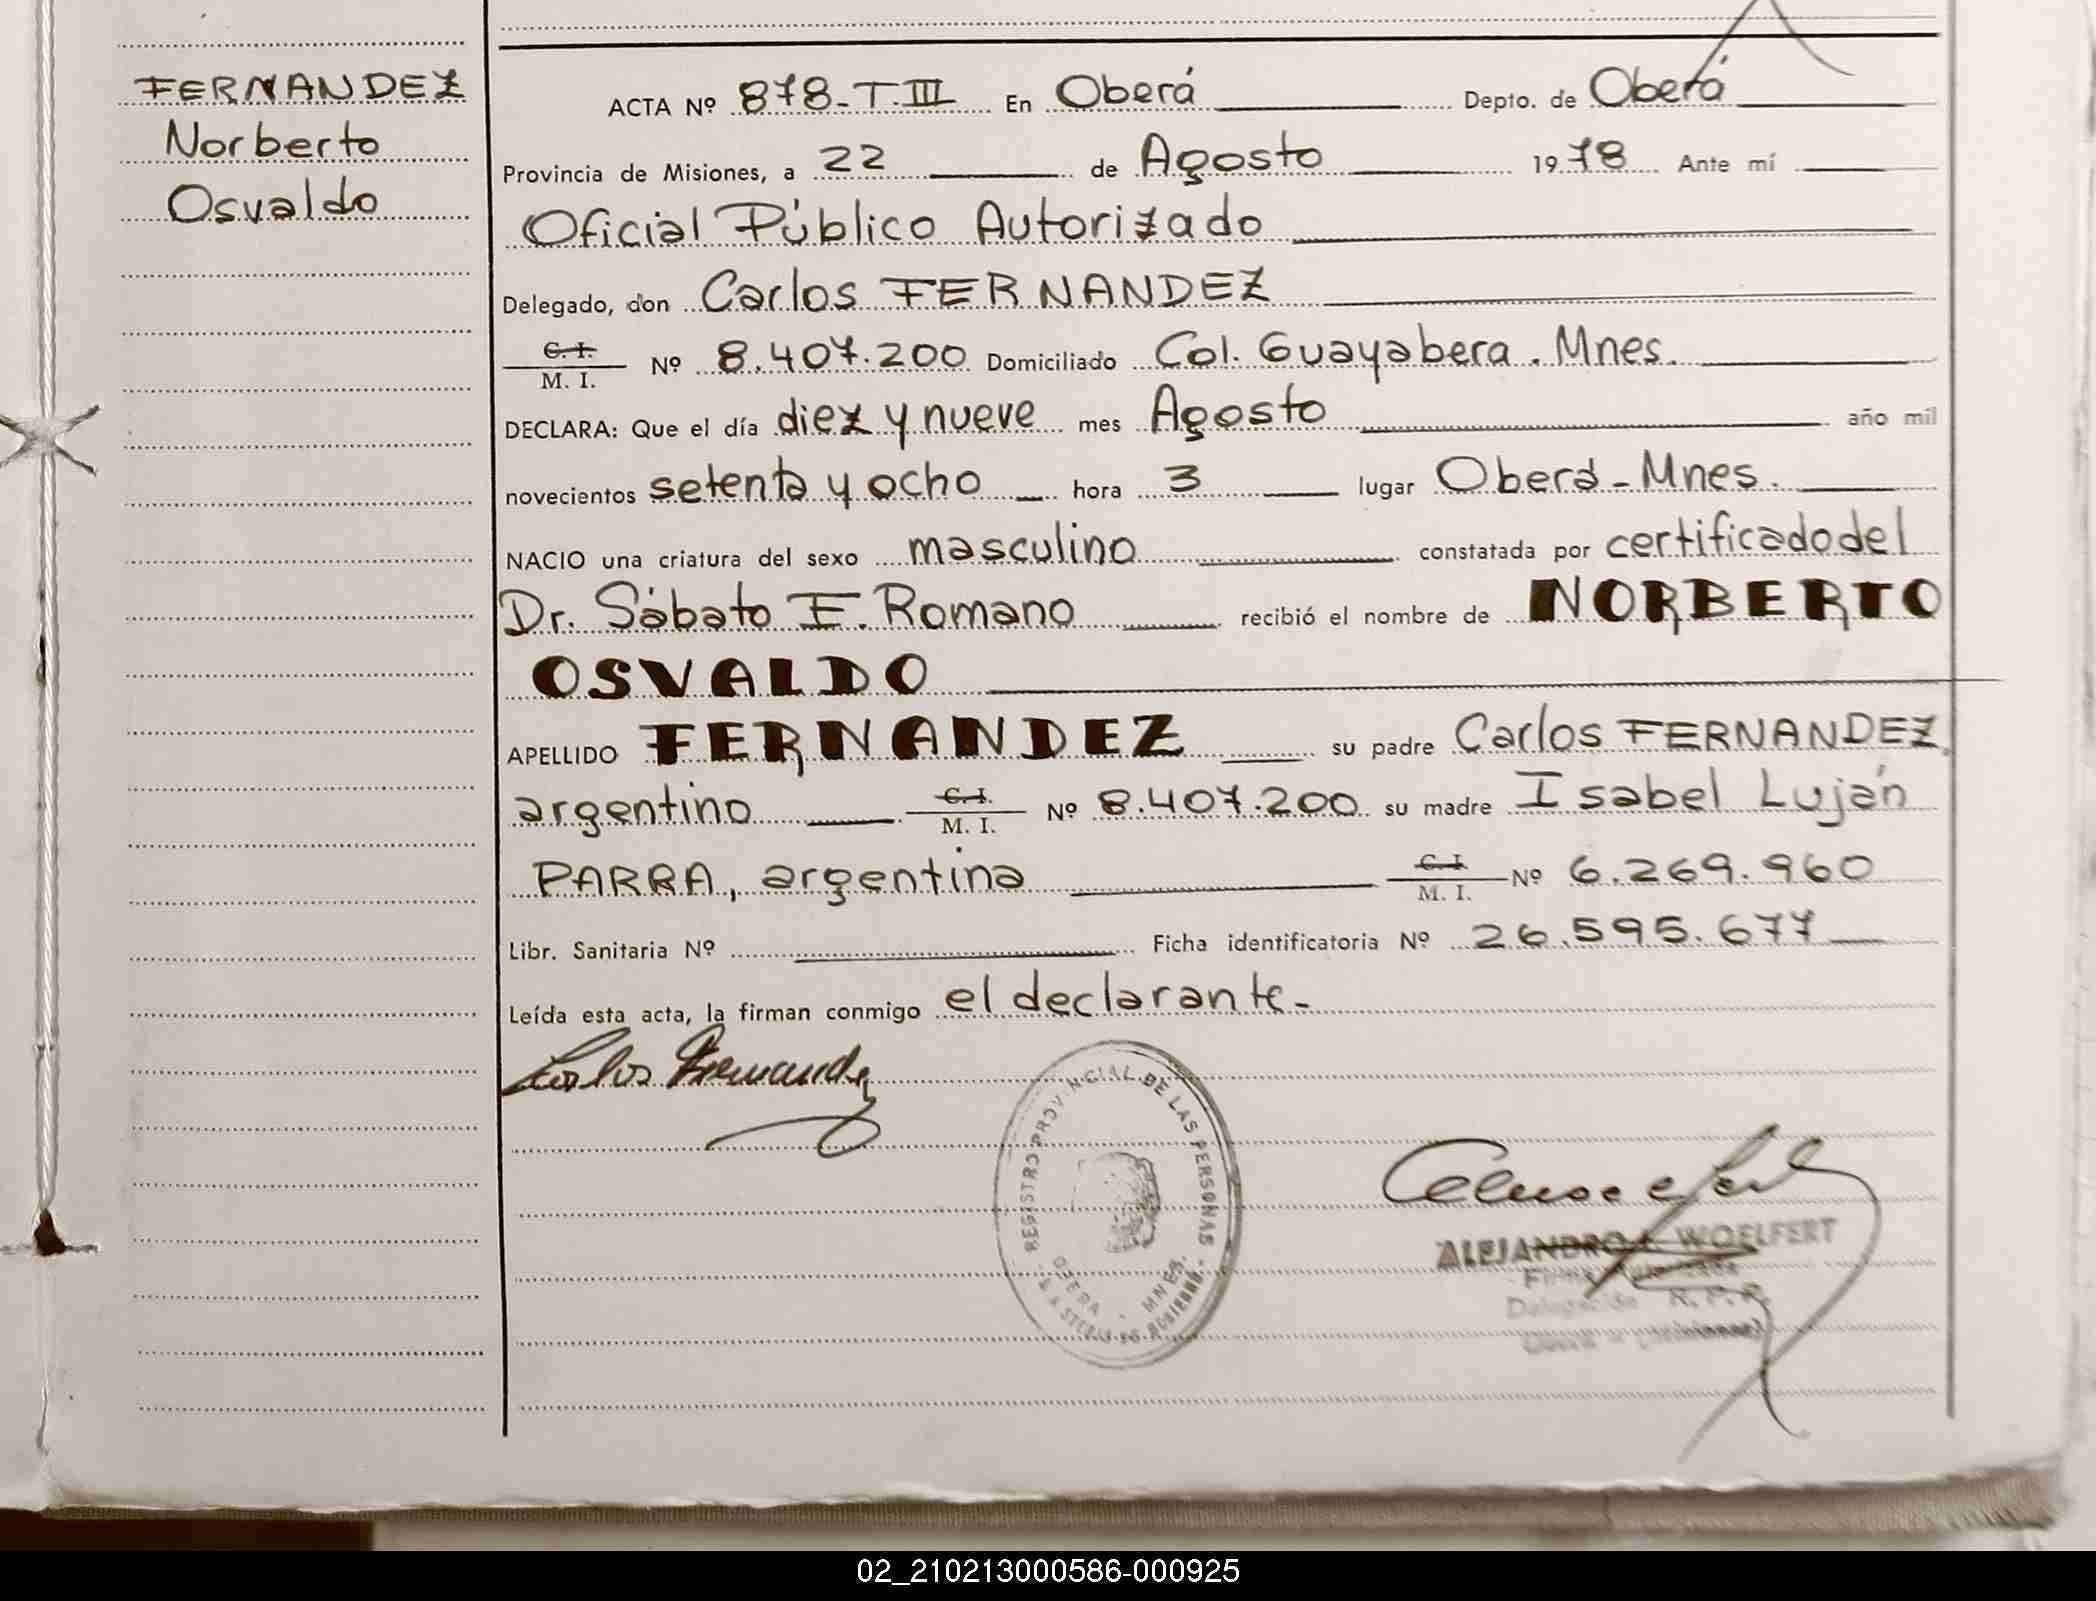 FERNANDEZ
Norberto
Osvaldo
ACTA Nº 878-T.III En Oberá Depto. de Oberá
Provincia de Misiones, a 22 de Agosto 1978 Ante mí
Oficial Público Autorizado
Delegado, don Carlos FERNANDEZ
C. I.
M. I. Nº 8.407.200 Domiciliado Col. Guayabera. Mnes.
DECLARA: Que el día diez y nueve mes Agosto año mil
novecientos setenta y ocho hora 3 lugar Oberá-Mnes.
NACIO una criatura del sexo masculino constatada por certificado del
Dr. Sábato E. Romano recibió el nombre de NORBERTO
OSVALDO
APELLIDO FERNANDEZ su padre Carlos FERNANDEZ,
argentino C. I. M. I. Nº 8.407.200 su madre Isabel Luján
PARRA, argentina C. I. M. I. Nº 6.269.960
Libr. Sanitaria Nº Ficha identificatoria Nº 26.595.677
Leída esta acta, la firman conmigo el declarante.-
Carlos Fernandez
REGISTRO PROVINCIAL DE LAS PERSONAS
OBERA - MNES.
ALEJANDRO WOELFERT
Delegación R. P. P.
02_210213000586-000925